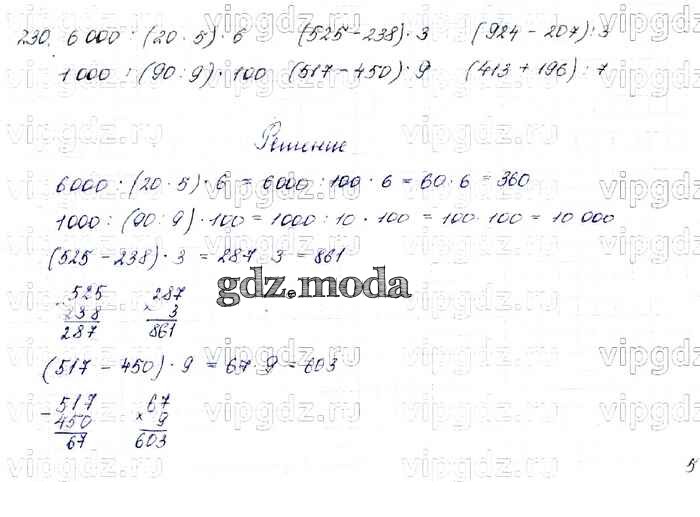 230. 6000 : (20 · 5) · 6 (525 - 238) · 3 (924 - 207) : 3
1000 : (90 : 9) · 100 (517 - 450) · 9 (413 + 196) : 7
Решение
6000 : (20 · 5) · 6 = 6000 : 100 · 6 = 60 · 6 = 360
1000 : (90 : 9) · 100 = 1000 : 10 · 100 = 100 · 100 = 10 000
(525 - 238) · 3 = 287 · 3 = 861
gdz.moda
- 525 287
238 × 3
287 861
(517 - 450) · 9 = 67 · 9 = 603
- 517 67
450 × 9
67 603
5
vipgdz.ru